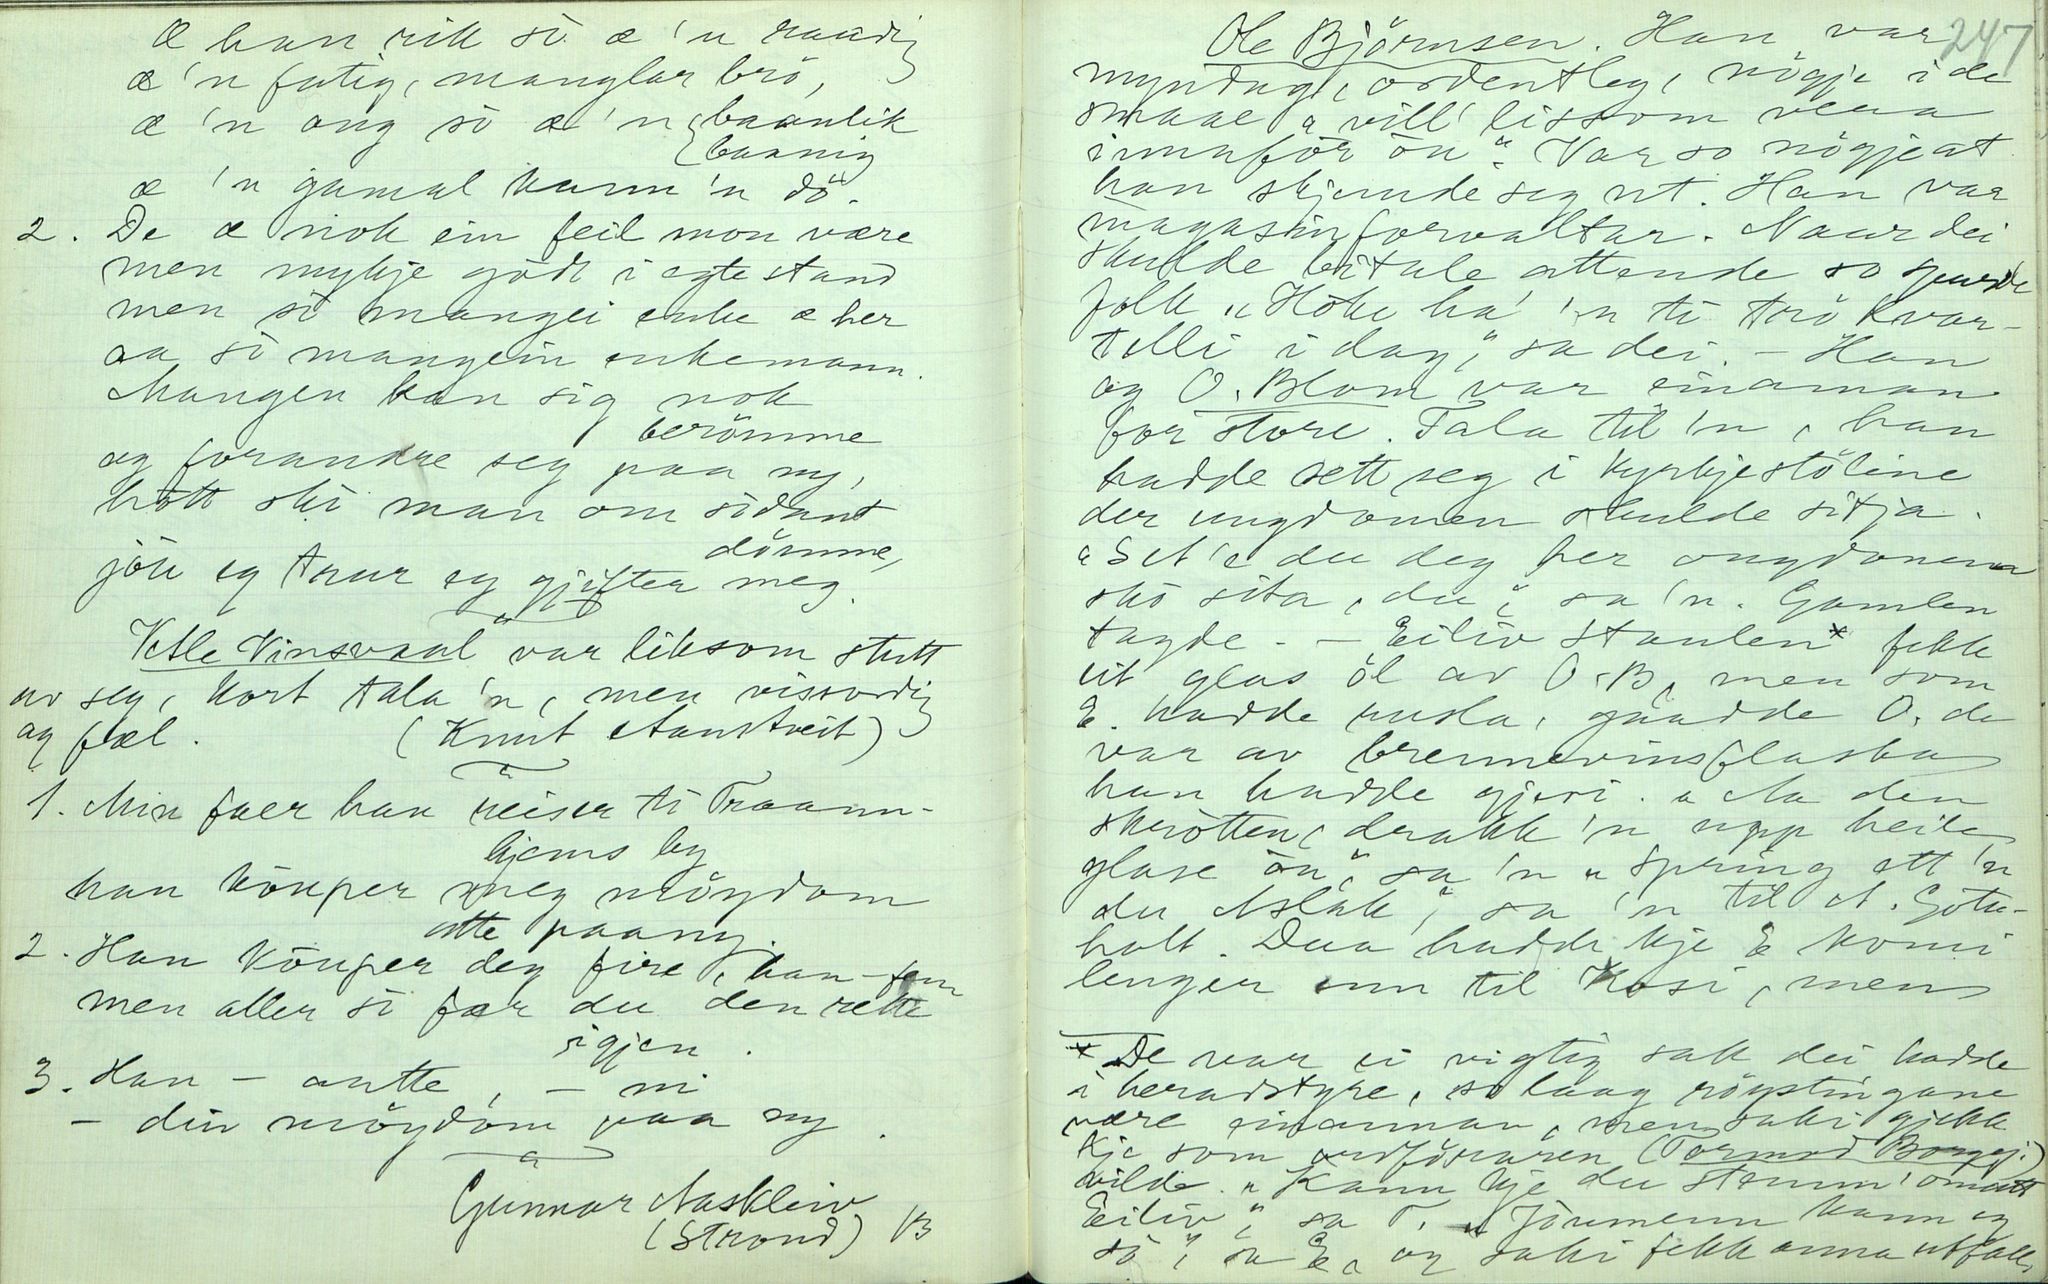 æ han rik so æ 'n raadig
æ 'n fatig, manglar brö,
æ 'n ong so æ 'n baanlik
baanig
æ 'n gamal kann 'n dö.
2. De æ nok ein feil mon være
men mykje godt i egtestand
men so mangei enke æ her
aa so mangein enkemann.
Mangen kan sig nok
berömme
og forandre seg paa ny,
hott sko man om sodant
dömme,
jön eg trur eg gjifter meg.
Vetle Vinsvaal var liksom stutt
av seg, kort tala 'n, men vissordig
og fæl. (Knut Aanstveit)
1. Min faer han reiser ti Traann-
hjems by
han köuper meg möydom
atte paany.
2. Han köuper deg fire, han – fem
men aller so fær du den rette
igjen.
3. Han – aatte, – ni
– din möydom paa ny.
Gunnar Naskleiv
(Strond) 13
247
Ole Björnsen. Han var
myndug, ordentleg, nögje i de
smaae "vill' lissom vera
innaför ön". Var so nögje at
han skjemde seg ut. Han var
magasinforvaltar. Naar dei
skulde betale attende so spurde
folk "Hoke ha' 'n ti tro kvar-
telli i dag," sa dei. – Han
og O. Blom var einannan
for store. Tala til 'n, han
hadde sett seg i kyrkjestolane
der ungdomen skulde sitja.
"Set'e du deg her ongdomen
sko sita, du", sa 'n. Gamlen
tagde. – Eiliv Staulen* fekk
eit glas öl av O. B, men som
E. hadde rusla, gaadde O. de
var av brennevinsflaska
han hadde gjevi. "Aa den
skrotten, drakk 'n upp heile
glase ön", sa 'n "spring ett 'n
du Aslak", sa 'n til A. Götu-
holt. Daa hadde kje E komi
lenger enn til Kosi, men
* De var ei vigtig sak dei hadde
i heradstyre, so laag röystingane
være einannan, men saki gjekk
kje som ordföraren (Tormod Borgji)
vilde. "Kann kje du stemm' omatt
Eiliv", sa T. "Jöumenn kann eg
so", sa E, og saki fekk anna utfall,